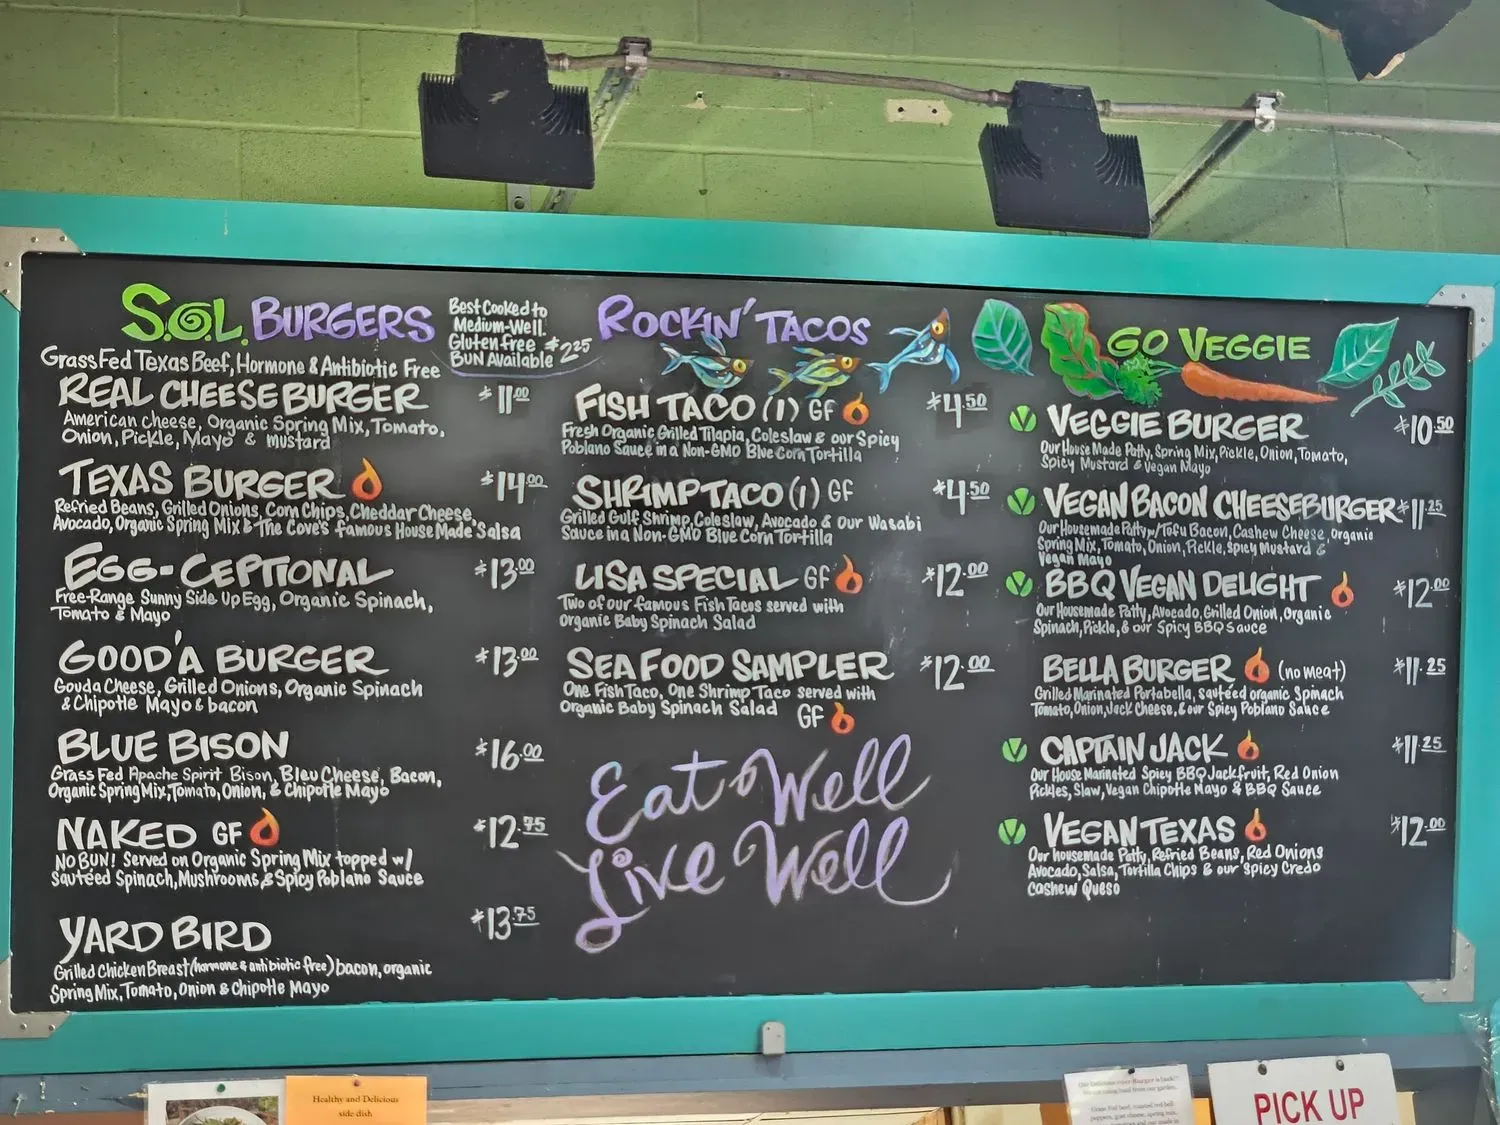 S.O.L. BURGERS
Best Cooked to
Medium-Well.
Gluten free $2.25
BUN Available
Grass Fed Texas Beef, Hormone & Antibiotic Free
REAL CHEESEBURGER $11.00
American cheese, Organic Spring Mix, Tomato,
Onion, Pickle, Mayo & mustard
TEXAS BURGER $14.00
Refried Beans, Grilled Onions, Corn Chips, Cheddar Cheese,
Avocado, Organic Spring Mix & The Cove's famous House Made Salsa
EGG-CEPTIONAL $13.00
Free-Range Sunny Side Up Egg, Organic Spinach,
Tomato & Mayo
GOOD'A BURGER $13.00
Gouda Cheese, Grilled Onions, Organic Spinach
& Chipotle Mayo & bacon
BLUE BISON $16.00
Grass Fed Apache Spirit Bison, Bleu Cheese, Bacon,
Organic Spring Mix, Tomato, Onion, & Chipotle Mayo
NAKED GF $12.75
NO BUN! Served on Organic Spring Mix topped w/
Sautéed Spinach, Mushrooms & Spicy Poblano Sauce
YARD BIRD $13.75
Grilled Chicken Breast (hormone & antibiotic free) bacon, organic
Spring Mix, Tomato, Onion & Chipotle Mayo
ROCKIN' TACOS
FISH TACO (1) GF $4.50
Fresh Organic Grilled Tilapia, Coleslaw & our Spicy
Poblano Sauce in a Non-GMO Blue Corn Tortilla
SHRIMP TACO (1) GF $4.50
Grilled Gulf Shrimp, Coleslaw, Avocado & Our Wasabi
Sauce in a Non-GMO Blue Corn Tortilla
LISA SPECIAL GF $12.00
Two of our famous Fish Tacos served with
Organic Baby Spinach Salad
SEAFOOD SAMPLER $12.00
One Fish Taco, One Shrimp Taco served with
Organic Baby Spinach Salad GF
Eat Well
Live Well
GO VEGGIE
VEGGIE BURGER $10.50
Our House Made Patty, Spring Mix, Pickle, Onion, Tomato,
Spicy Mustard & Vegan Mayo
VEGAN BACON CHEESEBURGER $11.25
Our Housemade Patty w/ Tofu Bacon, Cashew Cheese, Organic
Spring Mix, Tomato, Onion, Pickle, Spicy Mustard &
Vegan Mayo
BBQ VEGAN DELIGHT $12.00
Our Housemade Patty, Avocado, Grilled Onion, Organic
Spinach, Pickle, & our Spicy BBQ Sauce
BELLA BURGER (no meat) $11.25
Grilled Marinated Portabella, sautéed organic Spinach
Tomato, Onion, Jack Cheese, & our Spicy Poblano Sauce
CAPTAIN JACK $11.25
Our House Marinated Spicy BBQ Jackfruit, Red Onion
Pickles, Slaw, Vegan Chipotle Mayo & BBQ Sauce
VEGAN TEXAS $12.00
Our housemade Patty, Refried Beans, Red Onions
Avocado, Salsa, Tortilla Chips & our Spicy Credo
Cashew Queso
Healthy and Delicious
side dish
PICK UP